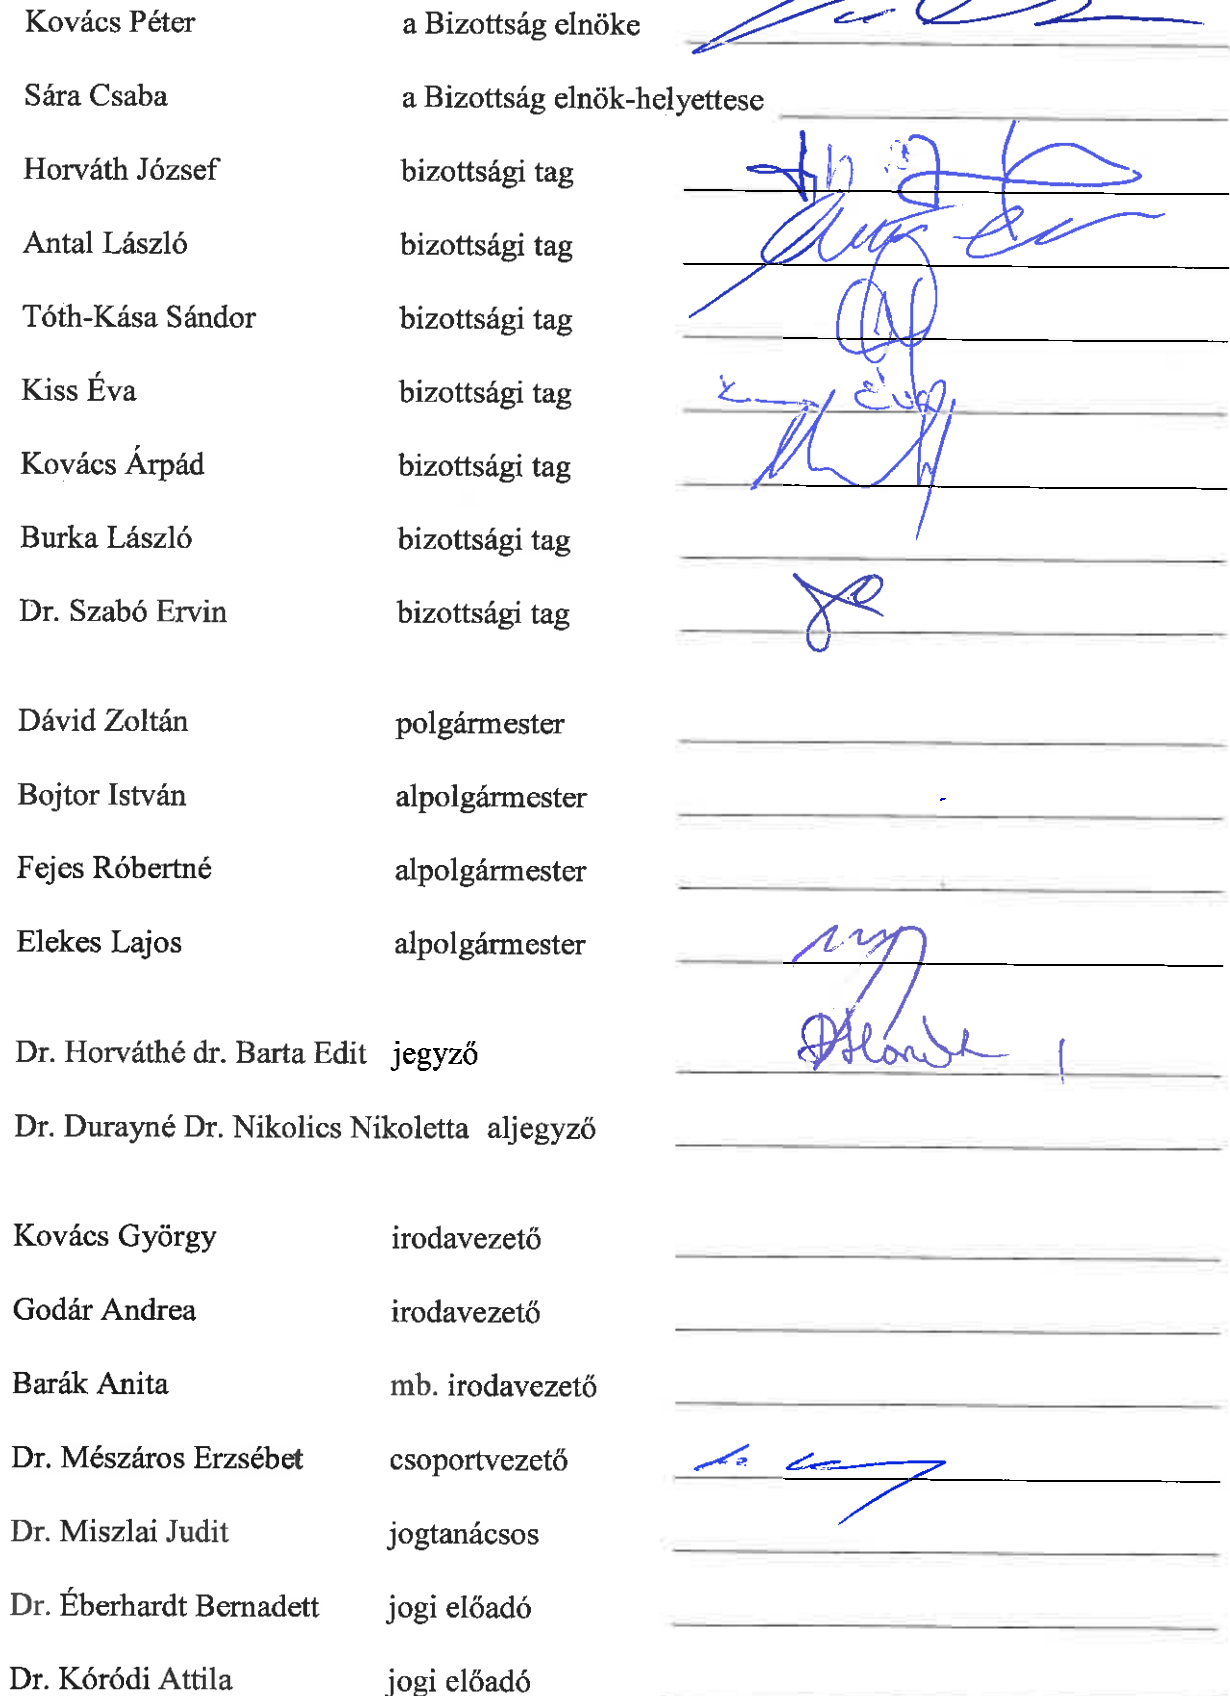 Kovács Péter a Bizottság elnöke
Sára Csaba a Bizottság elnök-helyettese
Horváth József bizottsági tag
Antal László bizottsági tag
Tóth-Kása Sándor bizottsági tag
Kiss Éva bizottsági tag Éva
Kovács Árpád bizottsági tag
Burka László bizottsági tag
Dr. Szabó Ervin bizottsági tag
Dávid Zoltán polgármester
Bojtor István alpolgármester
Fejes Róbertné alpolgármester
Elekes Lajos alpolgármester
Dr. Horváthé dr. Barta Edit jegyző
Dr. Durayné Dr. Nikolics Nikoletta aljegyző
Kovács György irodavezető
Godár Andrea irodavezető
Barák Anita mb. irodavezető
Dr. Mészáros Erzsébet csoportvezető
Dr. Miszlai Judit jogtanácsos
Dr. Éberhardt Bernadett jogi előadó
Dr. Kóródi Attila jogi előadó